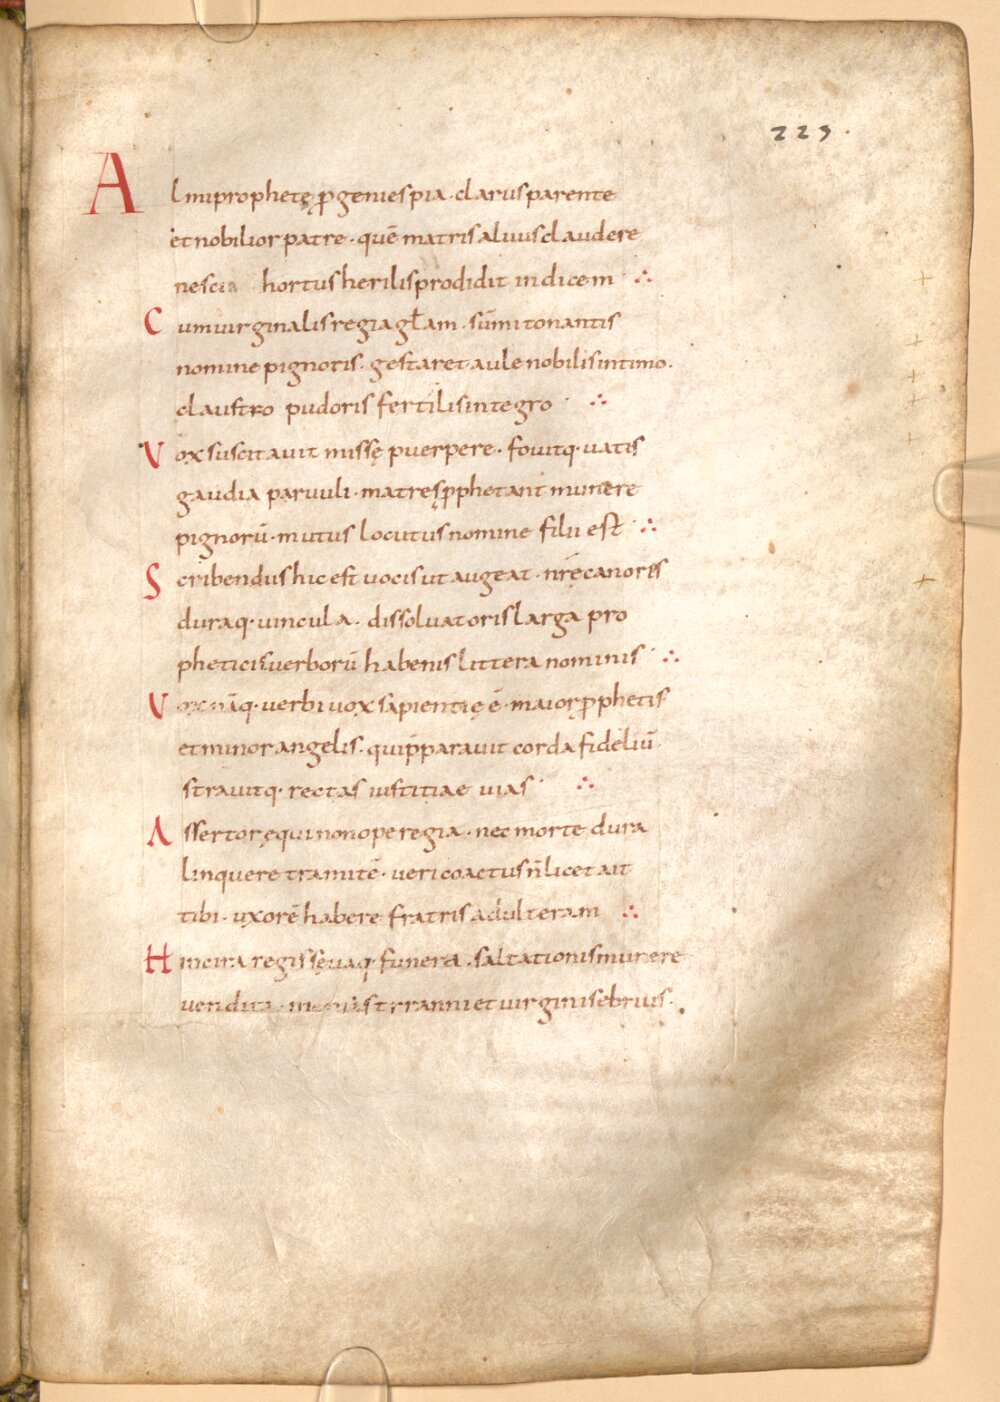 223.
Almiprophetę ꝓgeniespia · clarusparente
etnobilior patre · quē matrisaluusclaudere
nescia hortus herilisprodidit indicem ∴
Cumuirginalisregiagłam · sūmitonantis
nominepignoris · gestaret aule nobilisintimo ·
claustro pudoris fertilisintegro · ∴
Vox suscitauit missę puerpere · fouitq· uatis
gaudia paruuli · matresꝓphetant munere
pignorū · mutus locutus nomine filii est · ∴
Scribendus hic est uocis ut augeat · nr̄ę canoris
duraq· uincula · dissoluat oris larga pro
pheticis uerborū habenis littera nominis · ∴
Vox nāq· uerbi uox sapientię ē · maior ꝓphetis
et minor angelis · quip̄parauit corda fideliū
strauitq· rectas iustitiae uias · ∴
Assertor ęqui non ope regia · nec morte dura
linquere tramitē · ueri coactus n̄ licet ait
tibi · uxorē habere fratris adulteram ∴
Hinc ira regis sęuaq· funera · saltationis munere
uendita tyranni et uirginis ebriis ·